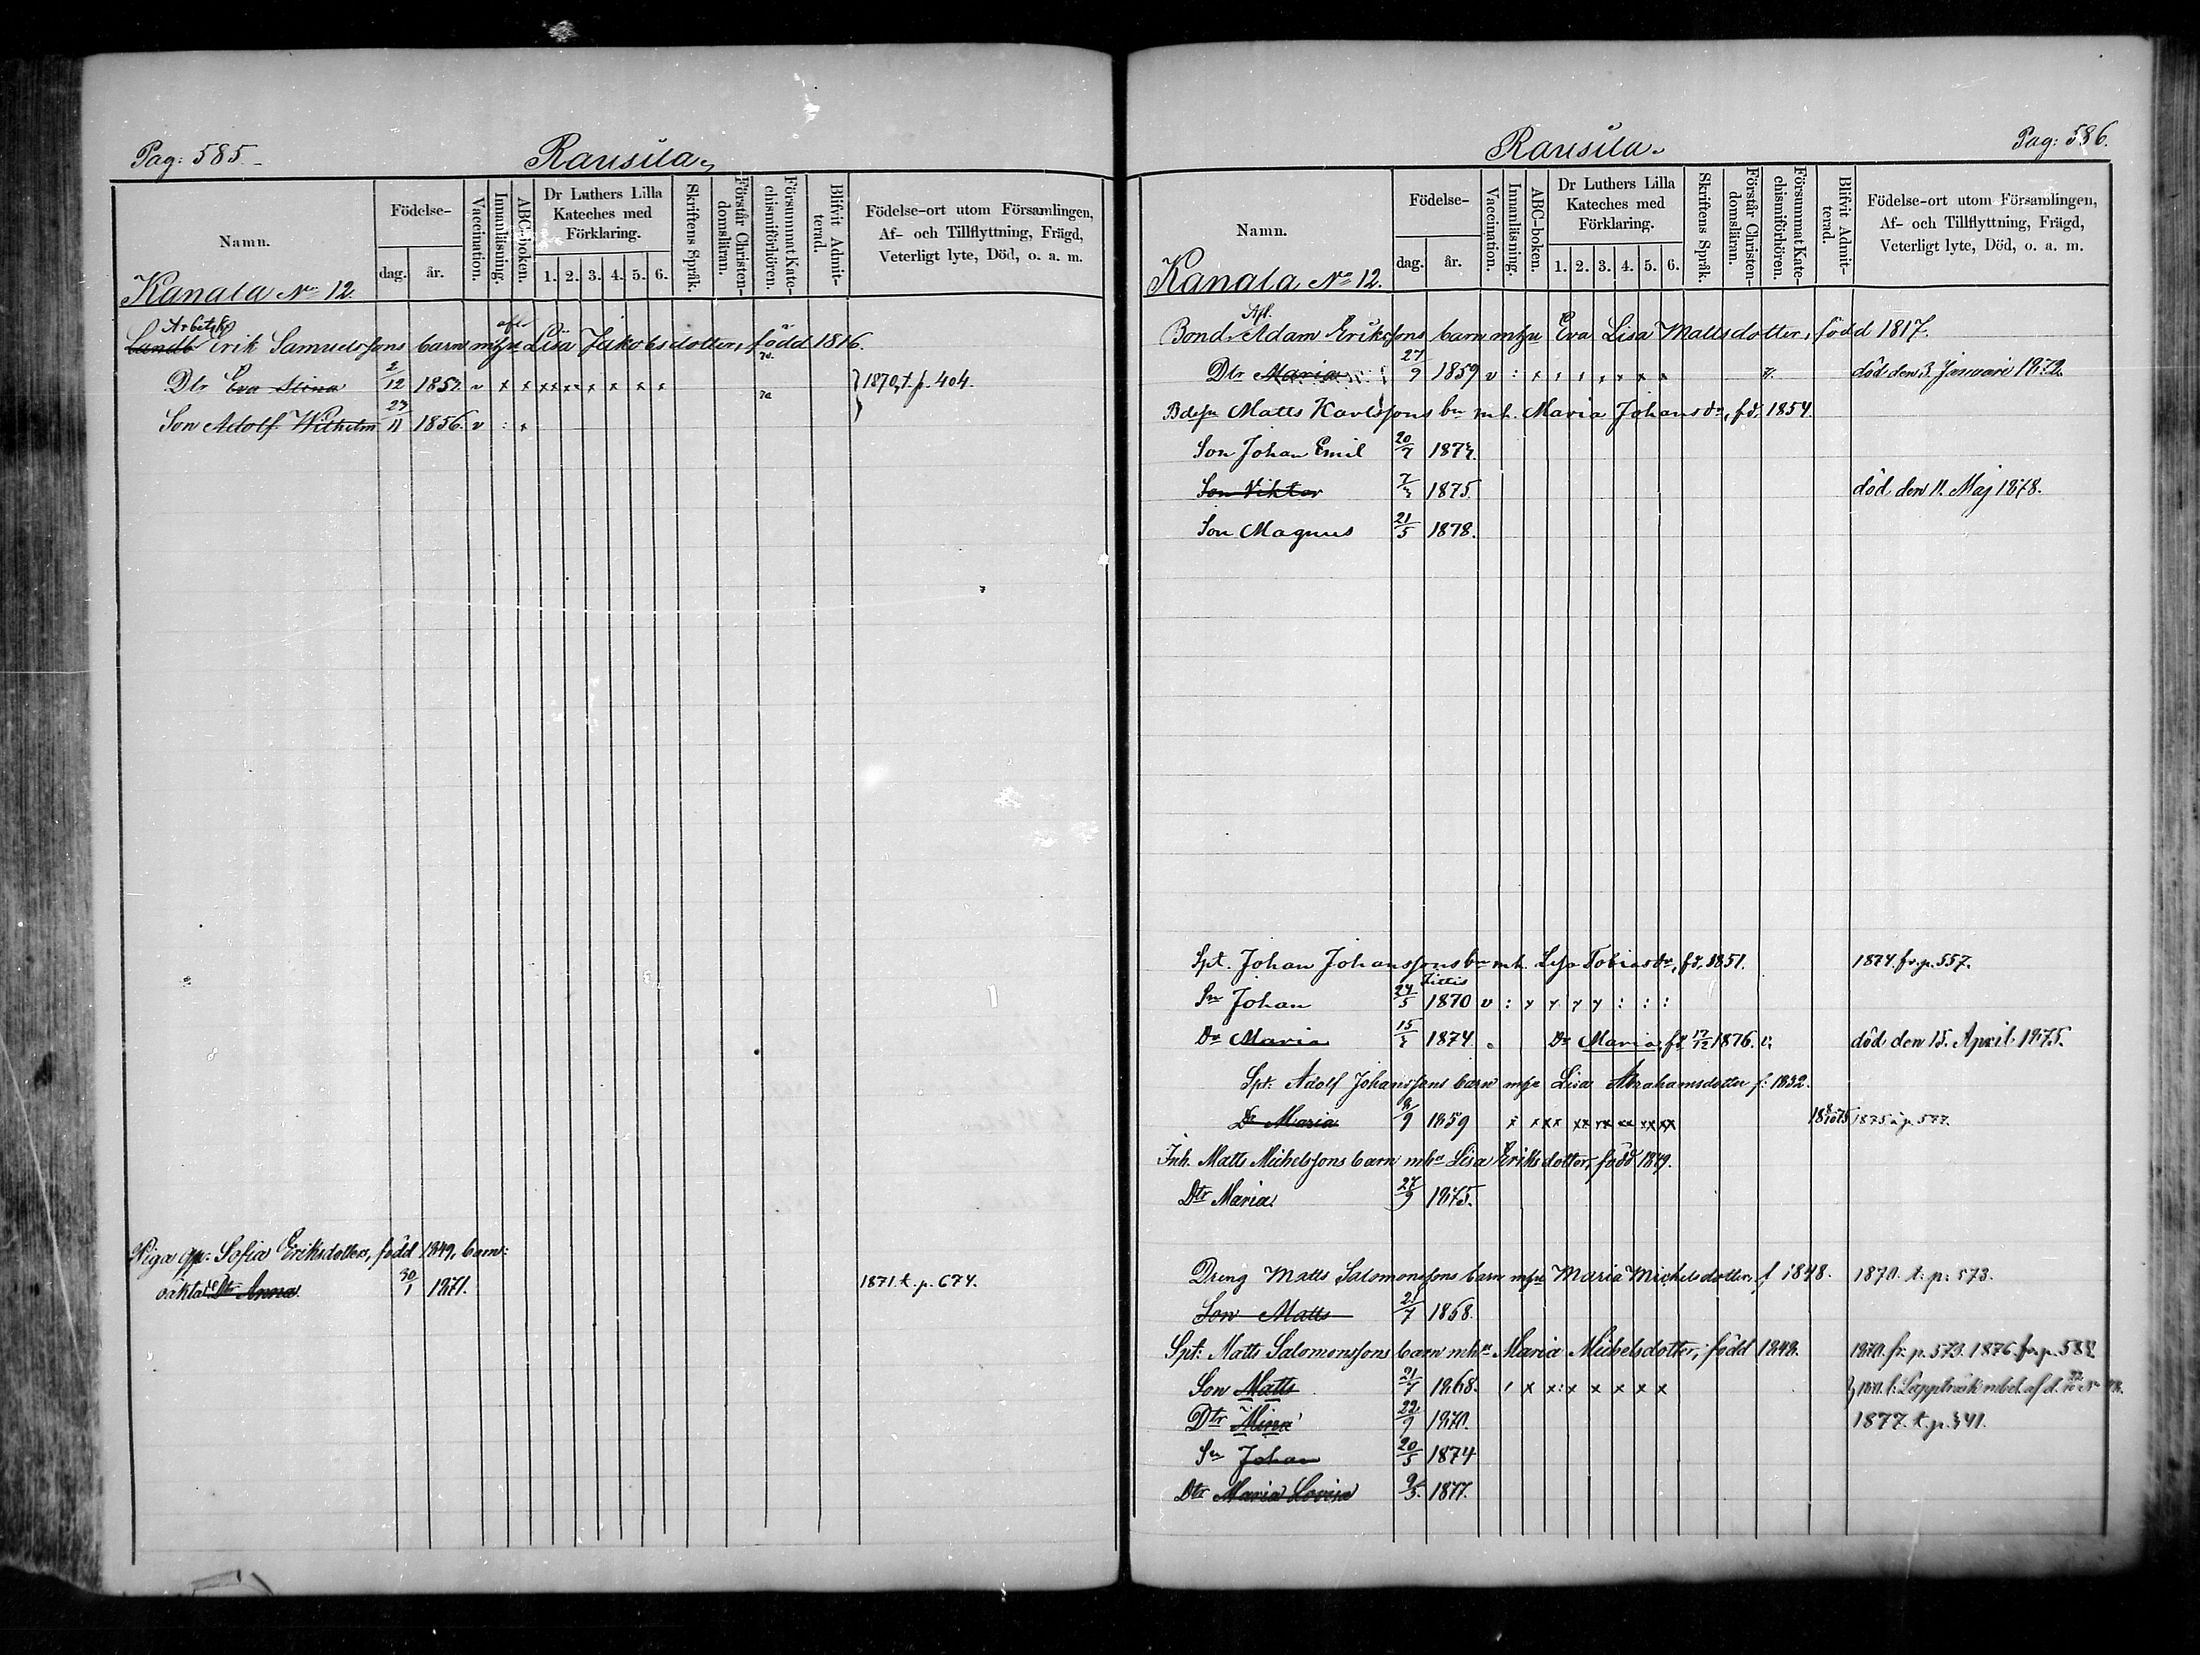 Pag: 585.
Ransila.
Namn.
Födelse-
dag. år.
Vaccination.
Innanläsning.
ABC-boken.
Dr Luthers Lilla Kateches med Förklaring.
1. 2. 3. 4. 5. 6.
Skriftens Språk.
Förstår Christendomsläran.
Försummat Katechismiförhören.
Blifvit Admitterad.
Födelse-ort utom Församlingen, Af- och Tillflyttning, Frägd, Veterligt lyte, Död, o. a. m.
Kanala No 12.
Arbetsk afl.
Landb Erik Samuelssons barn m hu Lisa Jakobsdotter, född 1816.
Dtr Eva Stina 2/12 1852. v x x xx xx x x x x } 1870, t. p. 404.
Son Adolf Wilhelm 27/11 1856. v : x
Piga Sofia Eriksdotters, född 1849, barn:
oäkta Dtr Anna. 30/1 1871. 1871. t. p. 674.
Pag: 586.
Ransila.
Namn.
Födelse-
dag. år.
Vaccination.
Innanläsning.
ABC-boken.
Dr Luthers Lilla Kateches med Förklaring.
1. 2. 3. 4. 5. 6.
Skriftens Språk.
Förstår Christendomsläran.
Försummat Katechismiförhören.
Blifvit Admitterad.
Födelse-ort utom Församlingen, Af- och Tillflyttning, Frägd, Veterligt lyte, Död, o. a. m.
Kanala No 12.
Afl.
Bond. Adam Erikssons barn m hu Eva Lisa Mattsdotter, född 1817.
Dtr Maria 27/9 1859 v : x död den 3 Januari 1872.
Matts Karlssons bn m h. Maria Johansdr, fd. 1854.
Son Johan Emil 20/7 1874.
Son Viktor 1875. död den 11. Maj 1878.
Son Magnus 21/5 1878.
Spt. Johan Johanssons bn m h. Lisa Tobiasdr, fd. 1851. 1874. fr. p. 557.
Sn Johan 24/5 1870 v : : : :
Dr Maria 1874. Dr Maria, fd 17/12 1876. v. död den 15. April 1875.
Spt. Adolf Johanssons barn m hu Lisa Abrahamsdotter f. 1832.
Dr Maria 1859 x xxx xx xx xx xx xx 1875 p. 577.
Inh. Matts Michelssons barn m hu Lisa Eriksdotter, född 1849.
Dtr Maria. 27/9 1875.
Dreng Matts Salomonssons barn m hu Maria Michelsdotter, f 1848. 1870. t. p. 573.
Son Matts 21/7 1868.
Spt. Matts Salomonssons barn m hu Maria Michelsdotter, född 1848. 1870. fr. p. 573. 1876. fr. p. 588.
Son Matts 21/7 1868. x x x x x x x } Lappträsk
Dtr Mina 22/9 1870. 1877. t. p. 341.
Sn Johan 20/5 1874
Dtr Maria Lovisa 1877.